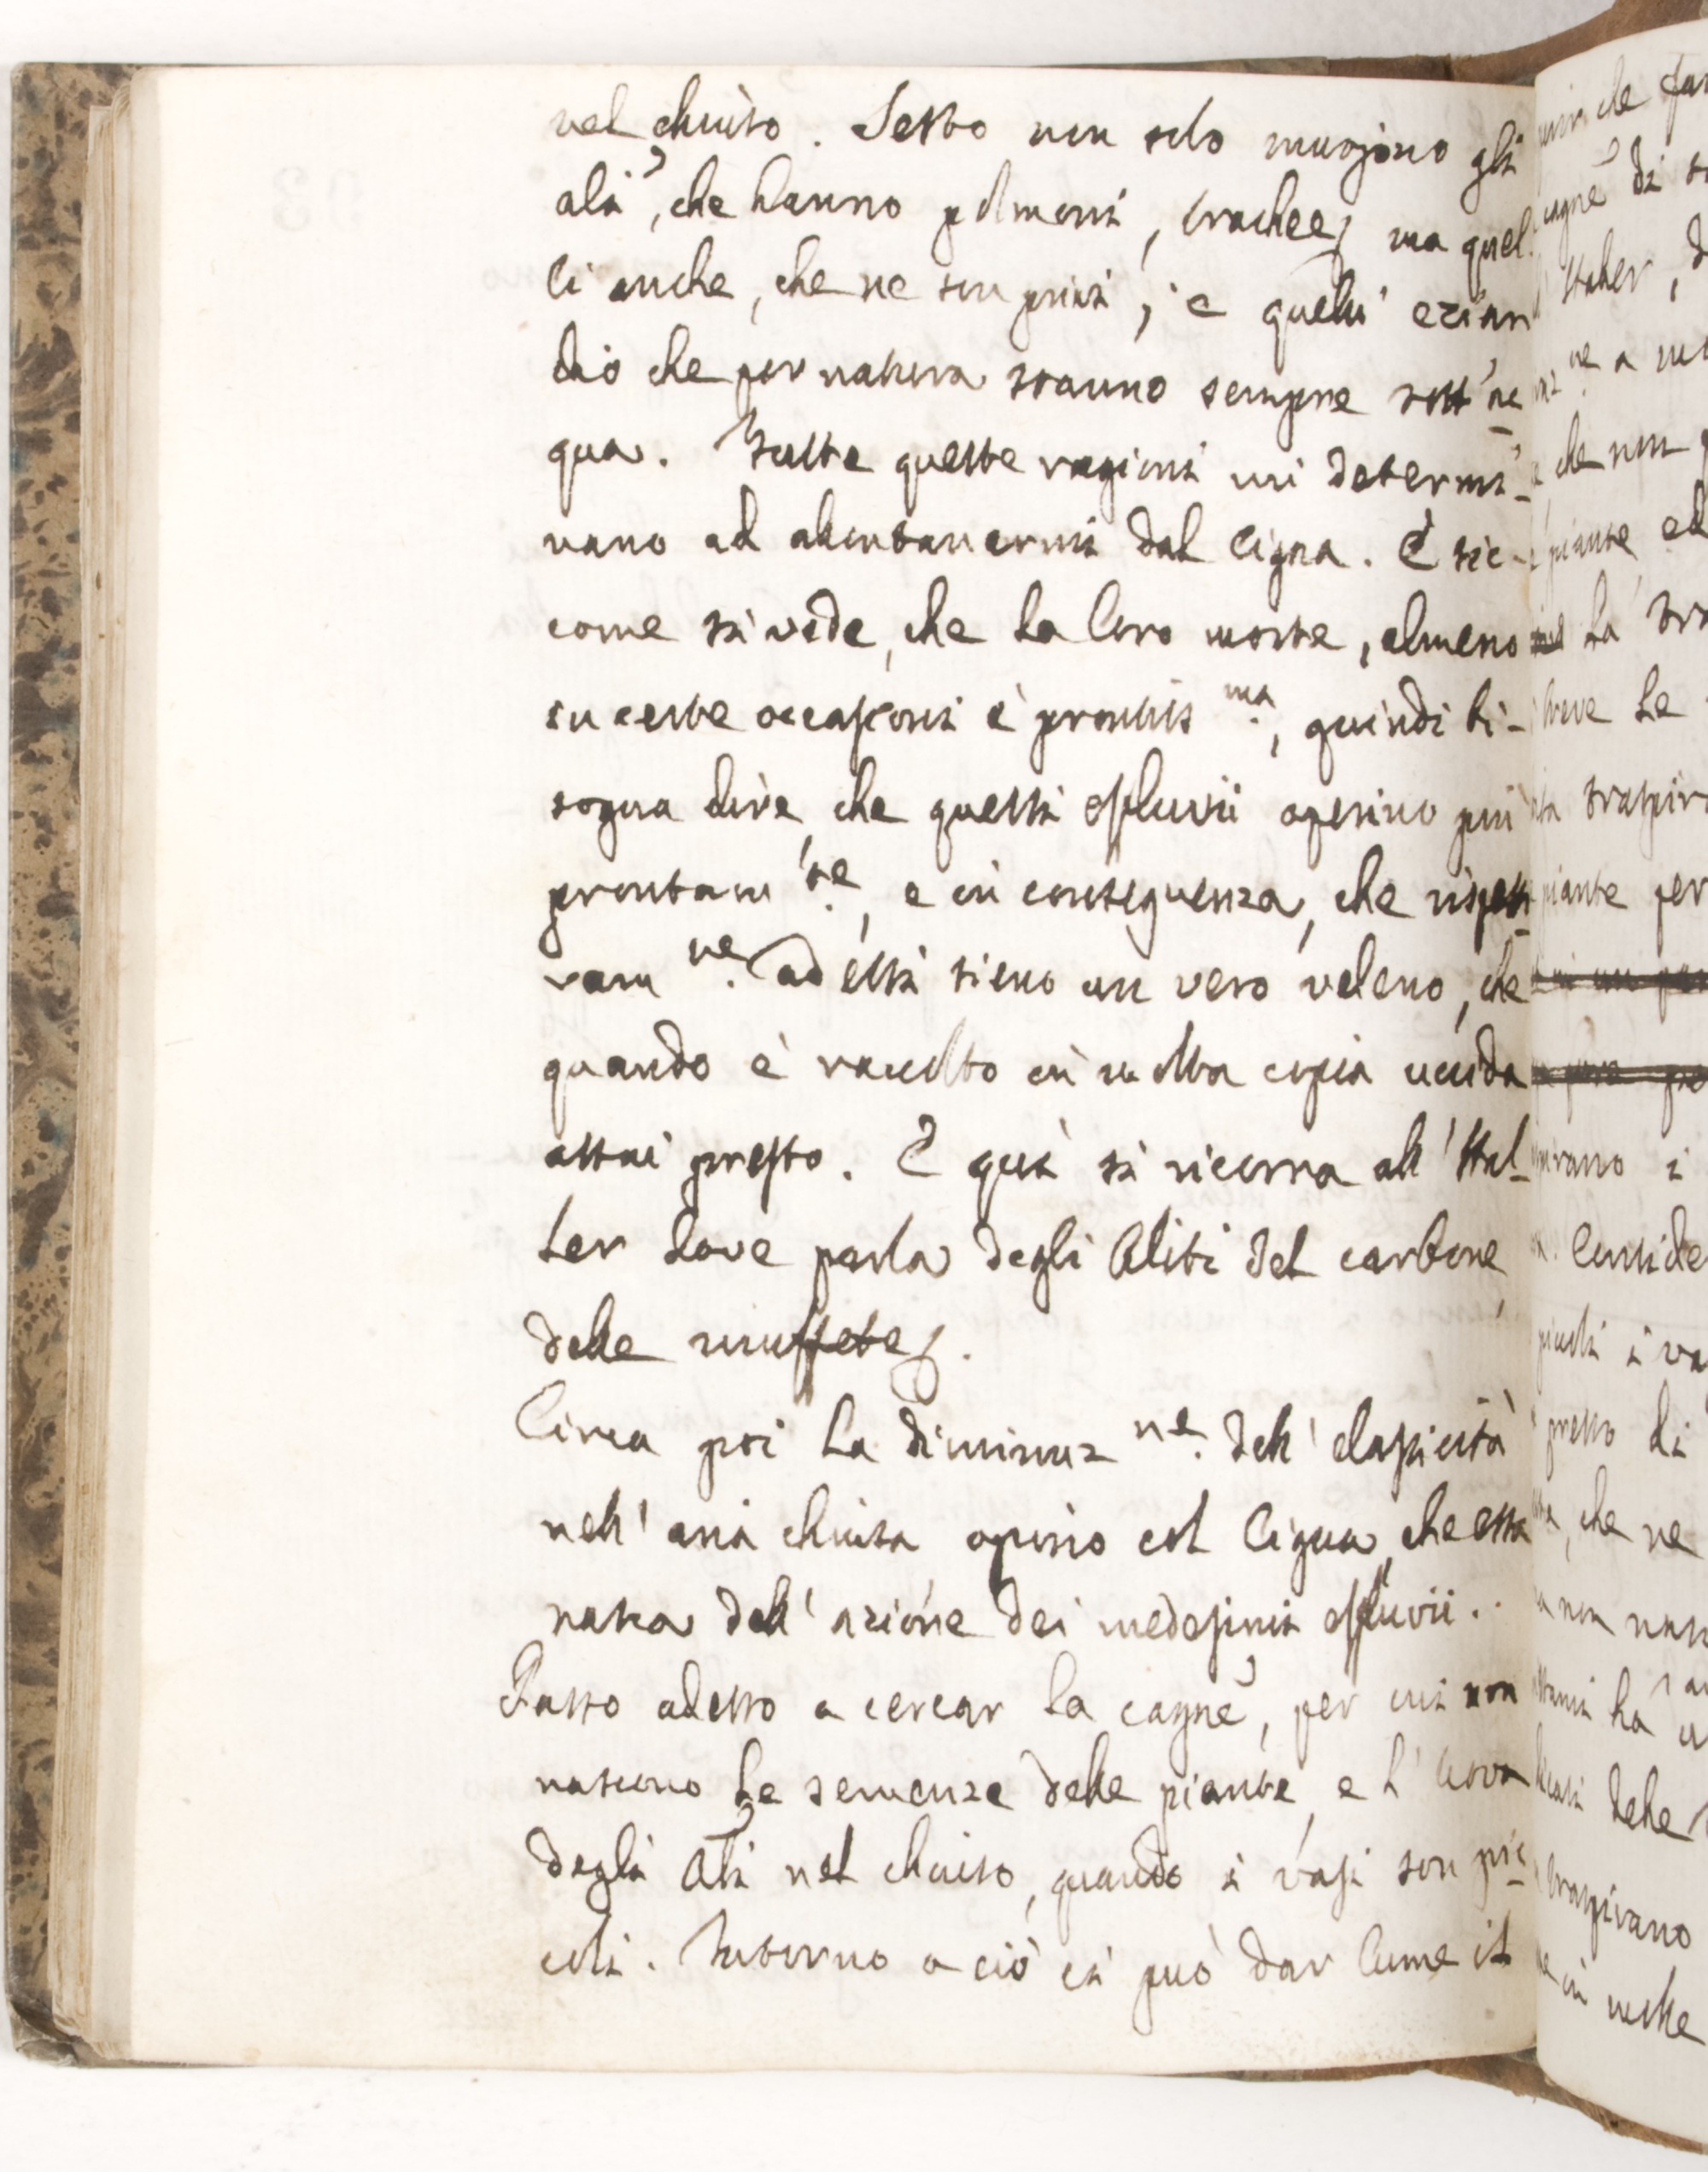 nel chiuso. Sesto non solo muojono gli
ali', che hanno polmoni, trachee, ma quel-
li anche, che ne son privi; e quelli ezian
dio che per natura stanno sempre sott'ac
qua. Tutte queste ragioni mi determi-
nano ad alontanarmi dal Cigna. E sic-
come si vede, che la loro morte, almeno
in certe occasioni è prontis ma., quindi bi-
sogna dire, che questi effluvii operino più
prontam te., e in conseguenza, che rispetti
vam ne. ad essi sieno un vero veleno, che
quando è raccolto in molta copia uccida
assai presto. E quì si ricorra all'Hal-
ler dove parla degli Aliti del carbone,
delle muffete.
Circa poi la diminuz ne. dell'elasticità
nell'aria chiusa opino col Cigna, che essa
nasca dall'azione dei medesimi effluvii.
Passo adesso a cercar la cagne, per cui non
nascono le semenze delle piante, e l'uova
degli Ali nel chiuso, quando i vasi son pic
coli. Intorno a ciò ci può dar lume il